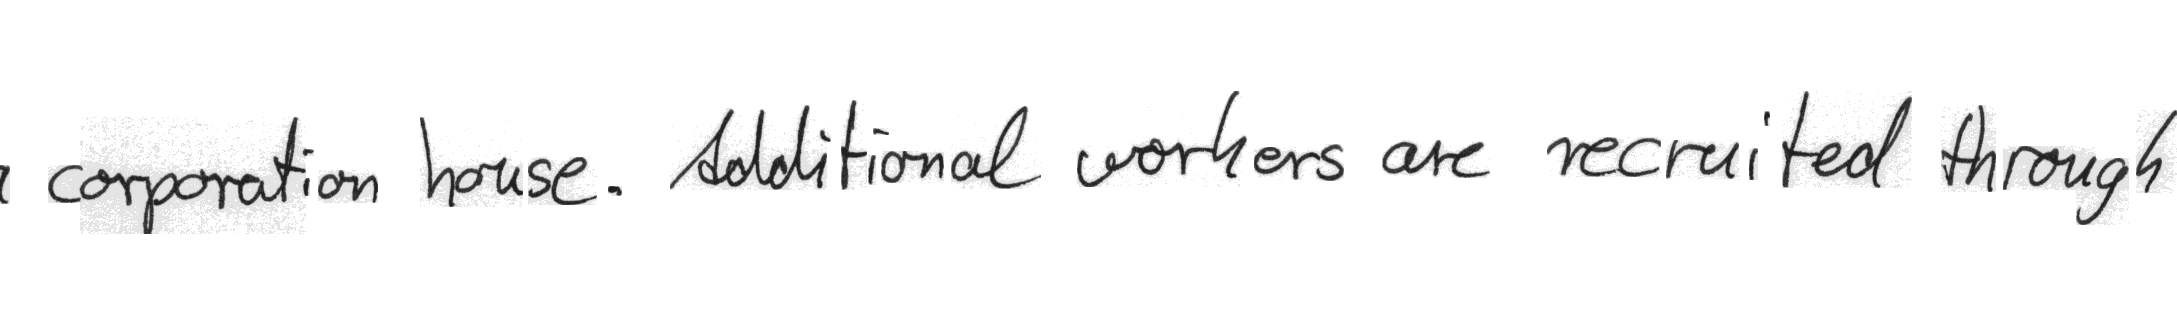 corporation house. Additional workers are recruited through